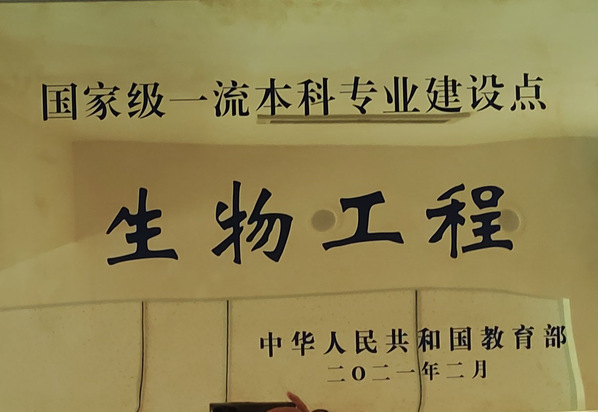 国家级一流本科专业建设点
生物工程
中华人民共和国教育部
二〇二一年二月